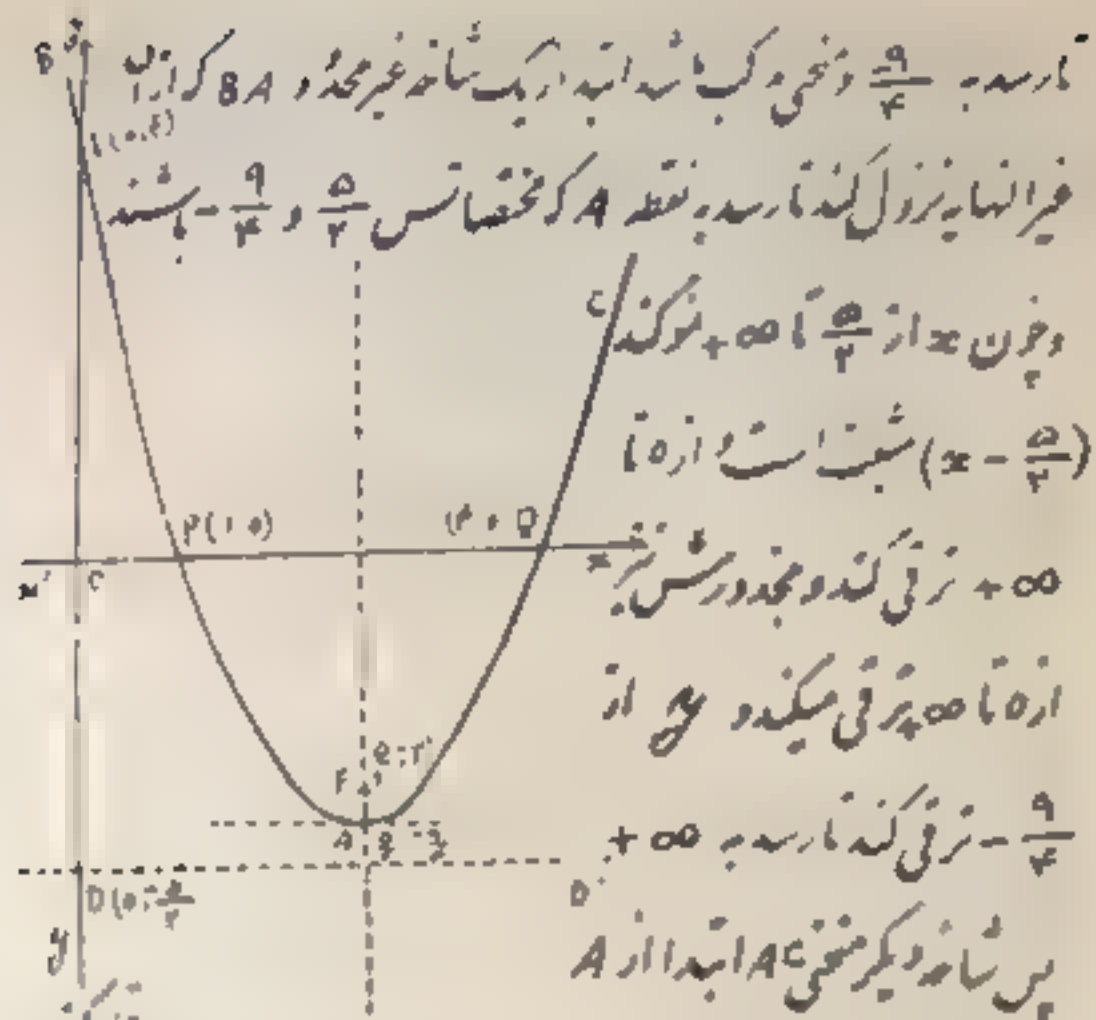 تا رسد به ۹/۴ و منحنی مرکب باشد ابتدا از یک شاخه غیر محدود BA که از
غیر النهایه نزول کند تا رسد به نقطه A که مختصاتش ۵/۲ و ۹/۴- باشند
و چون x از ۵/۲ تا ∞+ نمو کند
(x - ۵/۲) مثبت است و از ۰ تا
∞+ ترقی کند و مجذورش نیز
از ۰ تا ∞+ ترقی میکند و y از
۹/۴- ترقی کند تا رسد به ∞+
پس شاخه دیگر منحنی AC ابتدا از A
B
(۰,۴)
C
P(۱،۰)
(۴،۰) Q
x'
x
F
A
D
D'
y